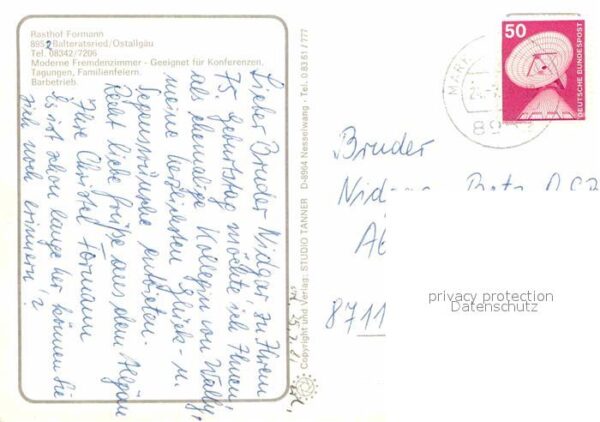 Rasthof Formann
8952 Balteratsried/Ostallgäu
Tel. 08342/7206
Moderne Fremdenzimmer - Geeignet für Konferenzen,
Tagungen, Familienfeiern.
Barbetrieb.
Lieber Bruder Nidgar, zu Ihrem
75. Geburtstag möchte ich Ihnen,
als ehemalige Kollegin von Wally,
meine herzlichsten Glück- u.
Segenswünsche entbieten.
Recht liebe Grüße aus dem Allgäu
Ihre Christel Formann
Es ist schon lange her, können Sie
sich noch erinnern?
Copyright und Verlag: STUDIO TANNER D-8964 Nesselwang · Tel. 0 83 61 / 777
50
DEUTSCHE BUNDESPOST
MARK
89
Bruder
Nidgar
8711
privacy protection
Datenschutz